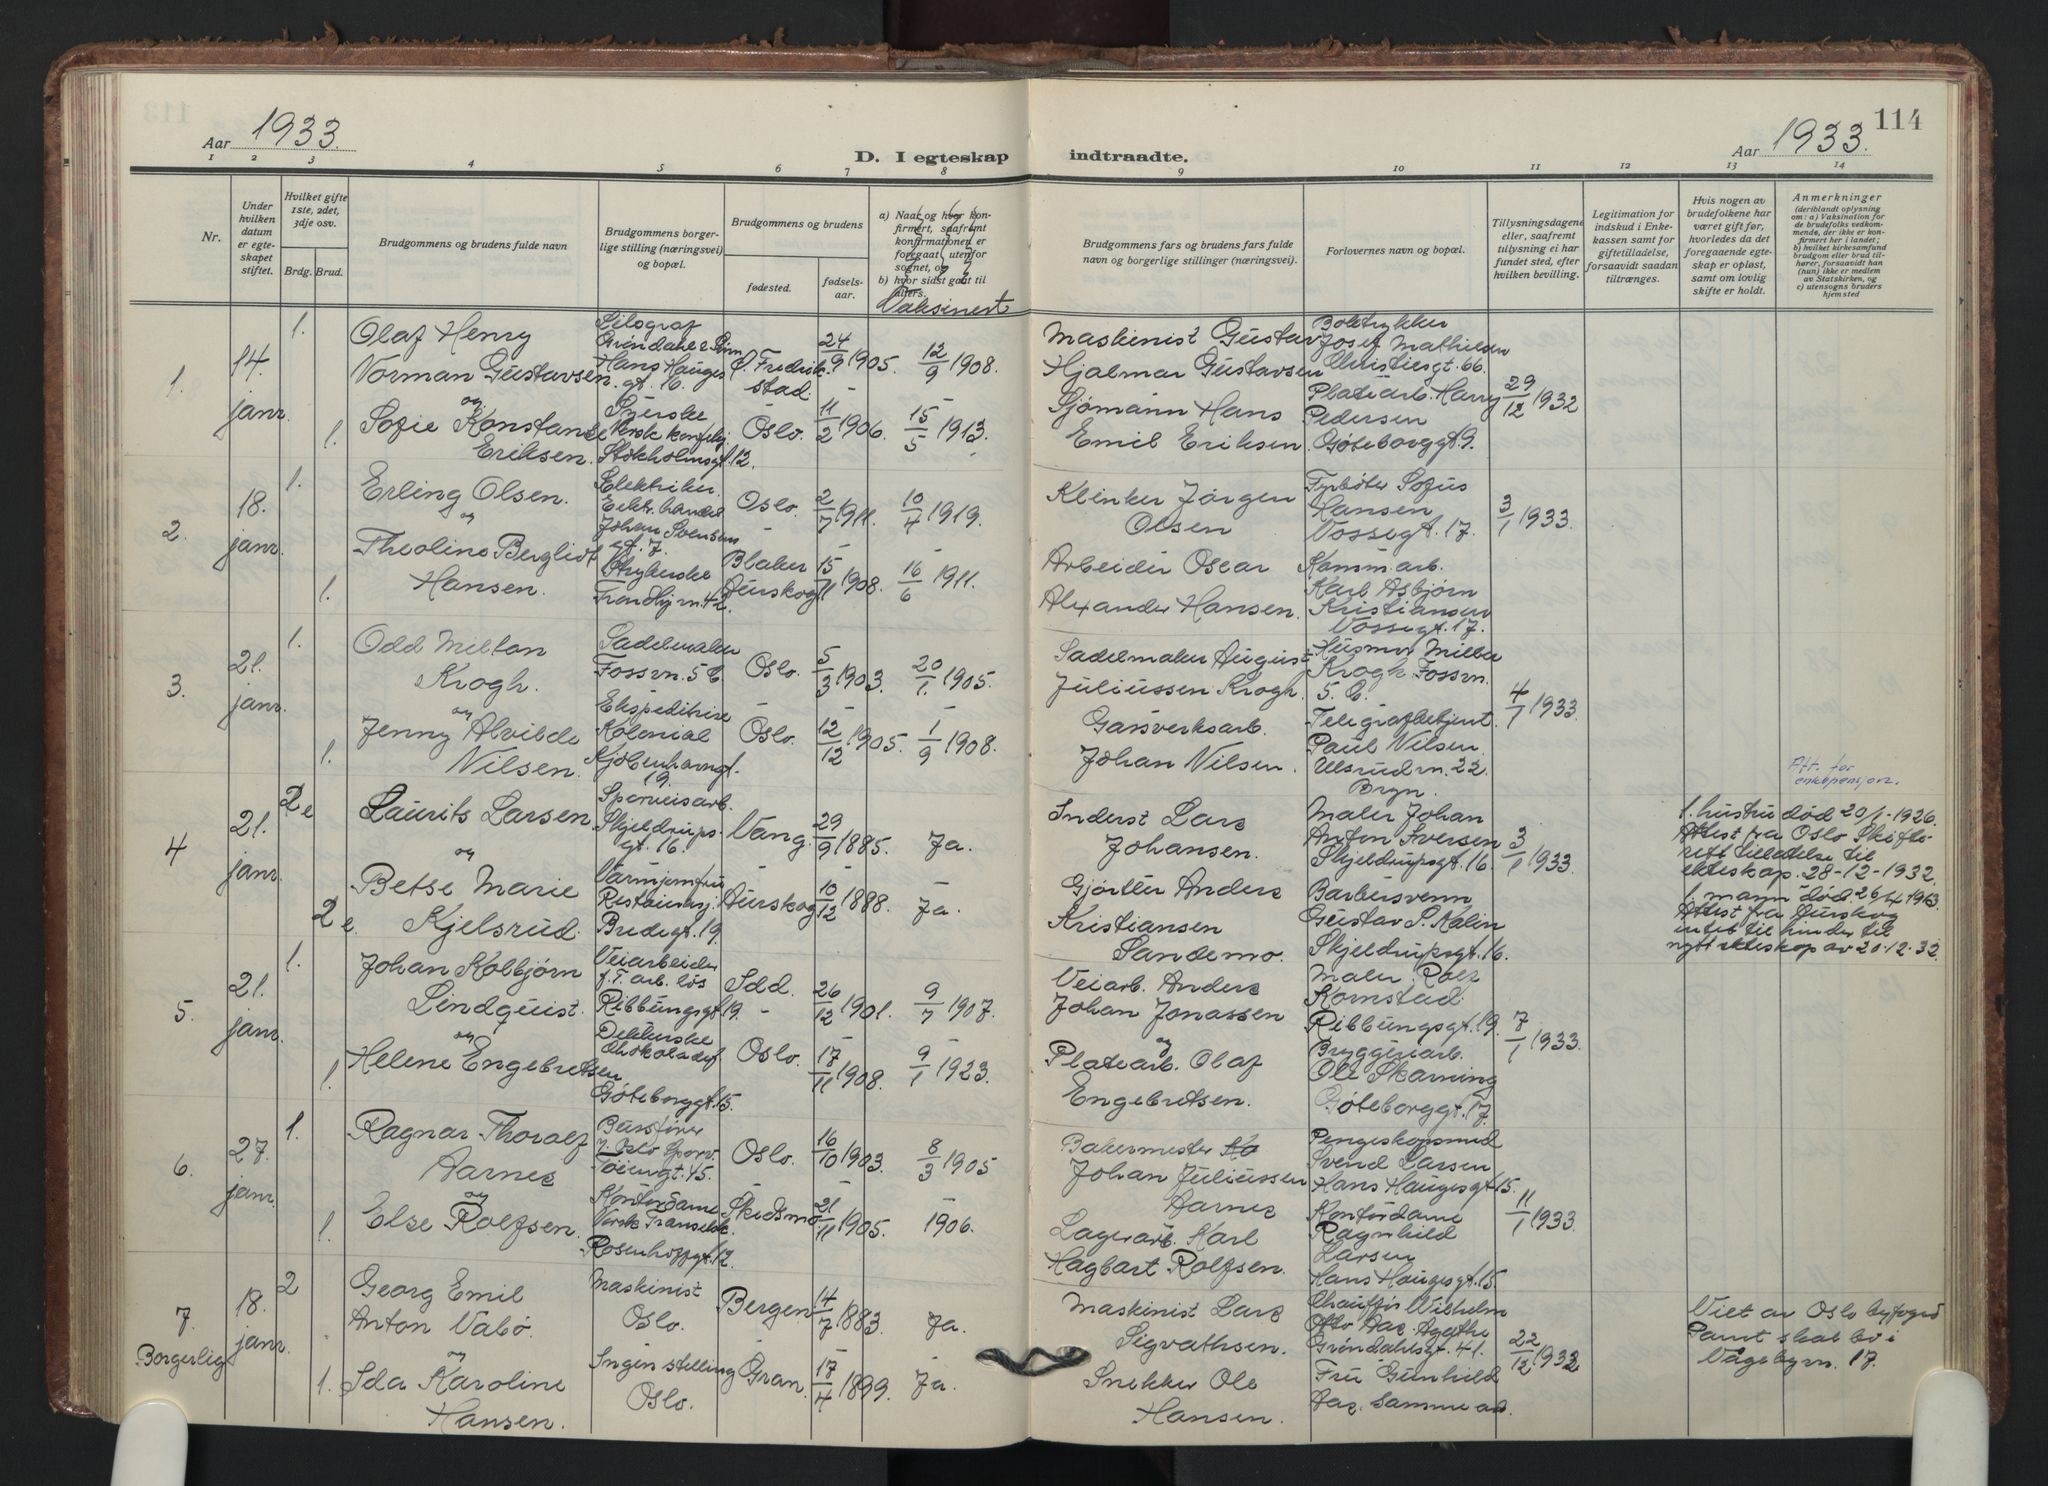 113
114
Aar 1933.
D. I egteskap indtraadte.
Aar 1933.
1 2 3 4 5 6 7 8 9 10 11 12 13 14
Nr.
Under hvilken datum er egteskapet stiftet.
Hvilket gifte 1ste, 2det, 3dje osv.
Brdg. Brud.
Brudgommens og brudens fulde navn
Brudgommens borgerlige stilling (næringsvei) og bopæl.
Brudgommens og brudens
fødested.
fødselsaar.
a) Naar og hvor konfirmert, saafremt konfirmationen er foregaat utenfor sognet, og
b) hvor sidst gaat til alters.
Vaksinert
Brudgommens fars og brudens fars fulde navn og borgerlige stillinger (næringsvei).
Forlovernes navn og bopæl.
Tillysningsdagene eller, saafremt tillysning ei har fundet sted, efter hvilken bevilling.
Legitimation for indskud i Enkekassen samt for giftetilladelse, forsaavidt saadan tiltrænges.
Hvis nogen av brudefolkene har været gift før, hvorledes da det foregaaende egteskap er opløst, samt om lovlig skifte er holdt.
Anmerkninger
(deriblandt oplysning om: a) Vaksination for de brudefolks vedkommende, der ikke er konfirmert her i landet; b) hvilket kirkesamfund brudgom eller brud tilhører, forsaavidt han (hun) ikke er medlem av Statskirken, og c) utensogns bruders hjemsted
1.
14. janr.
1.
Olaf Henry
Norman Gustavsen.
og
1.
Sofie Konstanse
Eriksen.
Litograf
Grøndahl & Søn
Hans Hauges
gt. 16.
Syerske
Norsk konfeksj.
Stokholmsgt. 12.
Ø. Fredrikstad.
Oslo.
24/9 1905.
11/2 1906.
12/9 1908.
15/5 1913.
Maskinist Gustav
Hjalmar Gustavsen
Sjømann Hans
Emil Eriksen.
Boktrykker
Josef Mathilsen
Christiesgt. 66.
Platearb. Harry
Pedersen
Gøteborggt. 9.
29/12 1932
2.
18. janr.
1.
Erling Olsen.
og
Theoline Bergliot
1.
Hansen.
Elektriker.
Johan Svensens
gt. 7.
Strykerske
Trondhj.vn. 42.
Oslo.
Blaker
Aurskog
2/7 1911.
15/11 1908.
10/4 1919.
16/6 1911.
Klinker Jørgen
Olsen
Arbeider Oscar
Alexander Hansen.
Fyrbøter Sofus
Hansen
Vossegt. 17.
Kamm.arb.
Karl Asbjørn
Kristiansen
Vossegt. 17.
3/1 1933.
3.
21. janr.
1.
Odd Milton
Krogh.
og
Jenny Alvilde
1.
Nilsen.
Sadelmaker
Fossvn. 5 C
Ekspeditrise
Kolonial
Kjøbenhavngt.
19.
Oslo.
Oslo.
5/3 1903.
12/12 1905.
20/1 1905.
1/9 1908.
Sadelmaker August
Juliussen Krogh.
Gassverksarb.
Johan Nilsen.
Husmor Milber
Krogh Fossvn.
5. C.
Telegrafbetjent.
Paul Nilsen.
Ulsrudvn. 22.
Bryn.
4/1 1933.
4
21. janr.
2e
Laurits Larsen.
og
Betse Marie
2e.
Kjelsrud.
Sporveisarb.
Skjeldrups-
gt. 16.
Varmjomfru
Restaurasj.
Bredegt. 19.
Vang.
Aurskog
29/9 1885.
10/12 1888.
Ja.
Ja.
Inderst Lars
Johansen.
Gjørtler Anders
Kristiansen
Sandemo.
Maler Johan
Anton Iversen
Skjeldrupsgt. 16.
Barbersvenn
Gustav S. Kalin
Skjeldrupsgt. 16.
3/1 1933.
Att. for
enkepensjon.
1. hustru død 20/1-1926.
Attest fra Oslo Skifte-
rett tilladelse til
ekteskap. 28-12-1932.
1. mann død. 26/4 1913.
Attest fra Aurskog
intet til hinder til
nytt ekteskap av 20.12.32
5.
21. janr.
1.
Johan Kolbjørn
Lindquist.
og
1.
Helene Engebretsen
Veiarbeider
f. T. arb. løs
Ribbungsgt. 19.
Dekkerske
Chokoladef.
Gøteborggt. 15.
Idd.
Oslo.
26/12 1901.
17/11 1908.
9/7 1907.
9/1 1923.
Veiarb. Anders
Johan Jonassen
og
Platearb. Olaf
Engebretsen.
Maler Rolf
Kornstad.
Ribbungsgt. 19.
Bryggeriarb.
Ole Skarning
Gøteborggt. 17.
7/1 1933.
6.
27. janr.
1.
Ragnar Thoralf
Aarnes
og
1.
Else Rolfsen.
Bussfører
v. Oslo Sporv.
Tøiengt. 45.
Kontordame
Rosenhoffgt. 12.
Oslo.
Skedsmo.
16/10 1903.
21/11 1905.
8/3 1905
1906.
Bakermester
Johan Juliussen
Aarnes
Lagerarb. Karl
Hagbart Rolfsen.
Pengeskapsmed
Svend Larsen
Hans Haugesgt. 15.
Kontordame
Ragnhild
Larsen
Hans Haugesgt. 15
11/1 1933.
7.
Borgerlig
18. janr.
2
Georg Emil
Anton Nabø.
og
1.
Ida Karoline
Hansen.
Maskinist
Oslo.
Ingen stilling
Oslo.
Bergen
Gran.
14/7 1883.
17/4 1899.
Ja.
Ja.
Maskinist Lars
Sigvathsen.
Snekker Ole
Hansen.
Chauffør Wilhelm
Otto Aas. Agathe
Grøndahlsgt. 41.
Fru Gunhild
Aas. Samme ad.
22/12 1932
Viet av Oslo byfogd
Pamt skal bo i
Vågebyvn. 17.